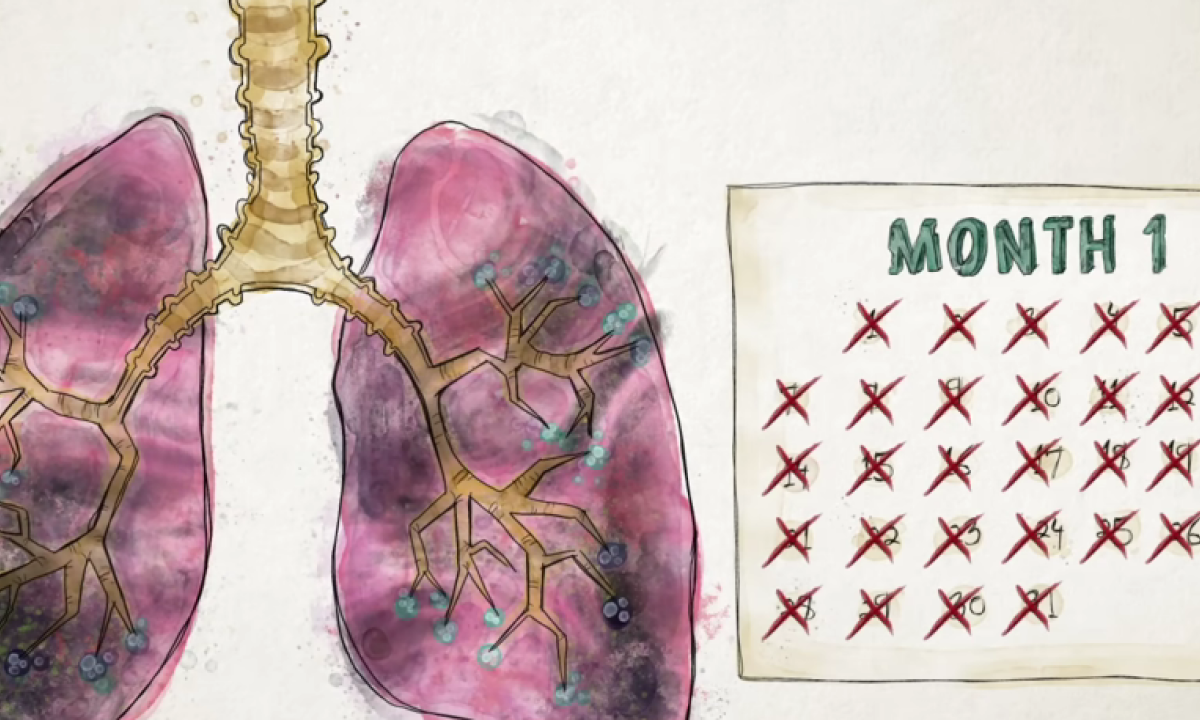 MONTH 1
1 2 3 4 5
7 8 9 10 11 12
14 15 16 17 18 19
21 22 23 24 25 26
28 29 30 31